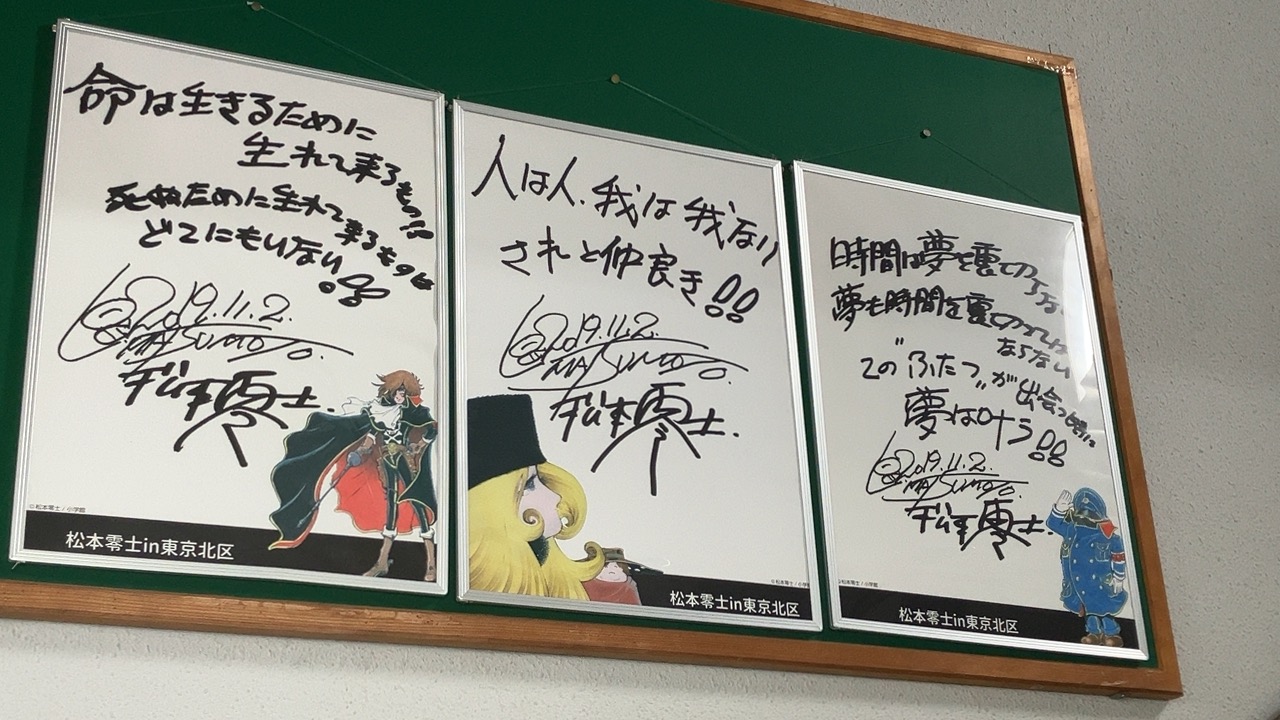 命は生きるために
生れて来るもの!!
死ぬために生れて来るものは
どこにもいない。!!
2019.11.2.
MATSUMOTO.
松本零士.
©松本零士/小学館
松本零士in東京北区
人は人.我は我なり
されど仲良き!!
2019.11.2.
MATSUMOTO.
松本零士.
松本零士in東京北区
時間は夢を裏切らない
夢も時間を裏切っては
ならない
この"ふたつ"が出会った時に
夢は叶う!!
2019.11.2.
MATSUMOTO.
松本零士.
©松本零士/小学館
松本零士in東京北区